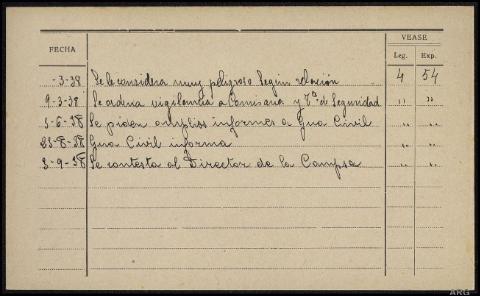 VEASE
FECHA Leg. Exp.
-3-38 Se le considera muy peligroso según relación 4 54
9-3-38 Se ordena vigilancia a Comisaria y de Seguridad " "
5-6-38 Se piden amplios informes a Gua Civil " "
23-8-38 Gua Civil informa " "
3-9-38 Se contesta al Director de la Campsa " "
ARG